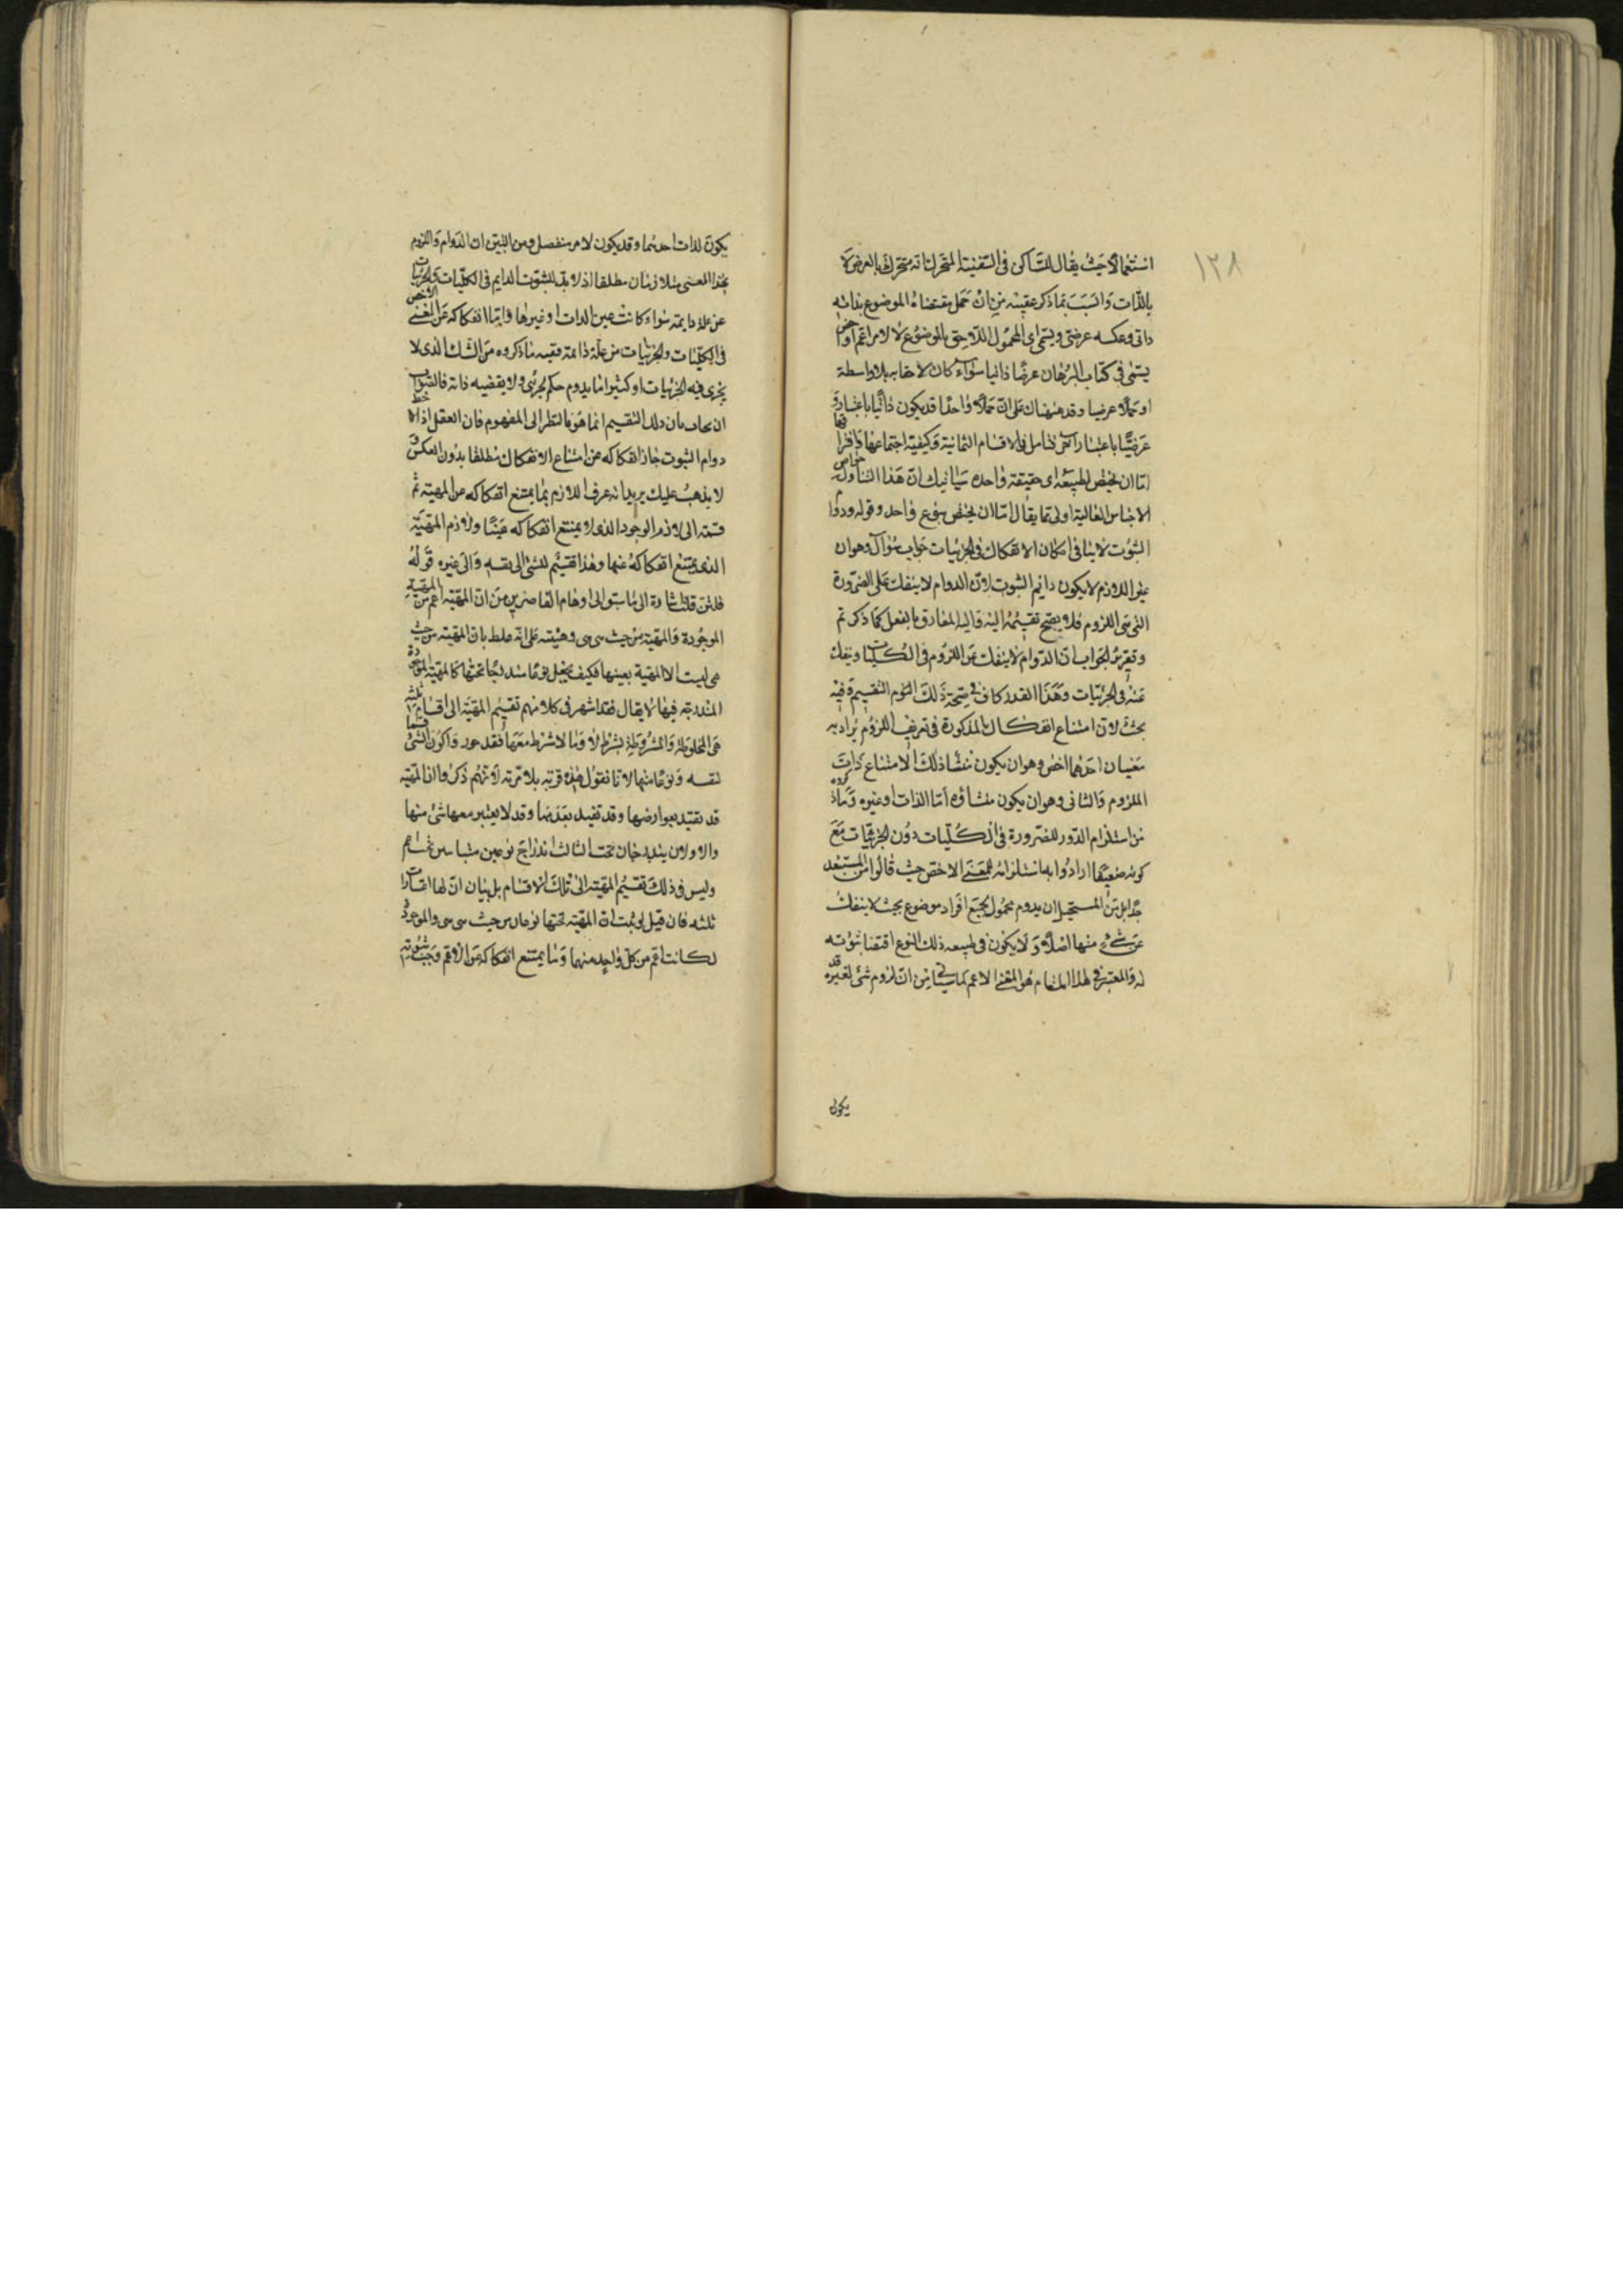 ١٢٨
استعمالا حيث يقال للساكن في السفينة المتحركة انه متحرك بالعرض لا
بالذات وانسب بما ذكر عقيبه من ان حمل مقتضاه الموضوع بذاته
ذاتي وعكسه عرضي ويسمى اي المحمول اللاحق بالموضوع لا لامر اعم او اخص
يسمى في كتاب البرهان عرضا ذاتيا سواء كان لاحقا به بلا واسطة
او حملا عرضيا وقد على ان حملا واحدا قد يكون ذاتيا باعتبار و
عرضيا باعتبار آخر فتامل في الاقسام الثمانية وكيفية اجتماعها وافتراقها
اما ان يختص بطبيعة اي حقيقة واحدة سيأتيك ان هذا التناول خواص
الاجناس العالية اولى مما يقال اما ان يختص بنوع واحد وقوله ودوام
الثبوت لا ينافي امكان الانفكاك في الجزئيات جواب سؤال وهو ان
غير اللازم لا يكون دائم الثبوت لان الدوام لا ينفك على الضرورة
التي هي اللزوم فلا يصح تقسيمه اليه واليه المفارق بالفعل كما ذكر ثم
وتقرير الجواب ان الدوام لا ينفك عن اللزوم في الكليات وينفك
عنه في الجزئيات وهذا القدر كاف في صحة ذلك التقسيم وفيه
بحث لان امتناع انفكاك المذكورة في تعريف اللزوم يراد به
معنيان احدهما اخص وهو ان يكون منشأ ذلك الامتناع ذات
الملزوم والثاني وهو ان يكون منشاؤه اما الذات او غيره وما ذكروه
من استلزام الدور للضرورة في الكليات دون الجزئيات مع
كونه ضعيفا ارادوا به استلزامه للمعنى الاخص حيث قالوا من المستبعد
جدا بل من المستحيل ان يدوم محمول لجميع افراد موضوع بحيث لا ينفك
عن شيء منها اصلا ولا يكون في طبيعة ذلك النوع اقتضاء ثبوته
له والمعتبر في هذا المقام هو المعنى الاعم كما سيأتي من ان لزوم شئ لغيره قد
يكون
يكون لذات احدهما وقد يكون لامر منفصل ومن البين ان الدوام واللزوم
بهذا المعنى متلازمان مطلقا اذ لا بد للثبوت الدايم في الكليات والجزئيات
عن علة دايمة سواء كانت عين الذات او غيرها واما انفكاكه عن المعنى الاخص
في الكليات والجزئيات من علة دائمة ففيه ما ذكروه من الشك الذي لا
يجري فيه الجزئيات او كثيرا ما يدوم حكم لجزئي ولا يقتضيه ذاته فالصواب
ان يجاب بان ذلك التقسيم انما هو بالنظر الى المفهوم فان العقل اذا لاحظ
دوام الثبوت جاز انفكاكه عن امتناع الانفكاك مطلقا بدون العكس
لا يذهب عليك يريد انه عرف اللازم بما يمتنع انفكاكه عن المهية ثم
قسمه الى لازم الوجود الذي لا يمتنع انفكاكه عنها ولازم المهية
الذي يمتنع انفكاكه عنها وهذا تقسيم للشئ الى نفسه والى غيره قوله
فلئن قلت اشارة الى ما سبق الى اوهام القاصرين من ان المهية اعم من المهية
الموجودة والمهية من حيث هي هي وهيئته على انه غلط بان المهية من حيث
هي ليست الا المهية بعينها فكيف يجعل نوعا مندرجا تحتها كالمهية الموجودة
المندرجة فيها لا يقال فقد اشتهر في كلامهم تقسيم المهية الى اقسام ثلثة
هي المخلوطة والمشروطة بشرط لا وما لا شرط معها فقد جوزوا كون الشئ قسما
لنفسه ونوعا منها لانا نقول هذه فرية بلا مرية لانهم ذكروا ان المهية
قد تقيد بعوارضها وقد تقيد بعدمها وقد لا يعتبر معها شئ منها
والاولان يندرجان تحت الثالث اندراج نوعين متباينين تحت اعم
وليس في ذلك تقسيم المهية الى تلك الاقسام بل بيان ان لها اعتبارات
ثلثه فان قيل لو ثبت ان المهية تحتها نوعان من حيث هي هي والموجودة
لكانت اعم من كل واحد منهما وما يمتنع انفكاكه عن الاعم وجب ثبوته